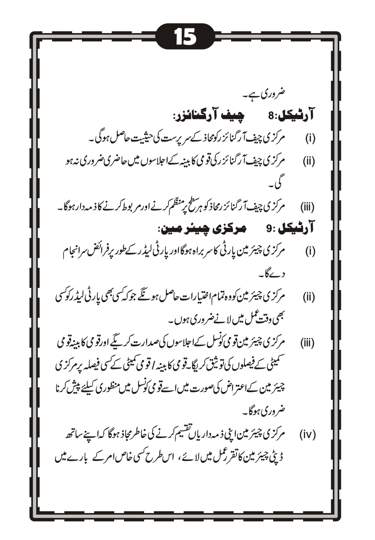 15
ضروری ہے۔
آرٹیکل:8 چیف آرگنائزر:
(i) مرکزی چیف آرگنائزر کو محاذ کے سرپرست کی حیثیت حاصل ہوگی۔
(ii) مرکزی چیف آرگنائزر کی قومی کابینہ کے اجلاسوں میں حاضری ضروری نہ ہو
گی۔
(iii) مرکزی چیف آرگنائزر محاذ کو ہر سطح پر منظم کرنے اور مربوط کرنے کا ذمہ دار ہوگا۔
آرٹیکل :9 مرکزی چیئرمین:
(i) مرکزی چیئرمین پارٹی کا سربراہ ہوگا اور پارٹی لیڈر کے طور پر فرائض سرانجام
دے گا۔
(ii) مرکزی چیئرمین کو وہ تمام اختیارات حاصل ہونگے جو کہ کسی بھی پارٹی لیڈر کو کسی
بھی وقت عمل میں لانے ضروری ہوں۔
(iii) مرکزی چیئرمین قومی کونسل کے اجلاسوں کی صدارت کریگے اور قومی کابینہ قومی
کمیٹی کے فیصلوں کی توثیق کریگا۔ قومی کابینہ / قومی کمیٹی کے کسی فیصلہ پر مرکزی
چیئرمین کے اعتراض کی صورت میں اسے قومی کونسل میں منظوری کیلئے پیش کرنا
ضروری ہوگا۔
(iv) مرکزی چیئرمین اپنی ذمہ داریاں تقسیم کرنے کی خاطر مجاز ہوگا کہ اپنے ساتھ
ڈپٹی چیئرمین کا تقرر عمل میں لائے ، اس طرح کسی خاص امر کے بارے میں